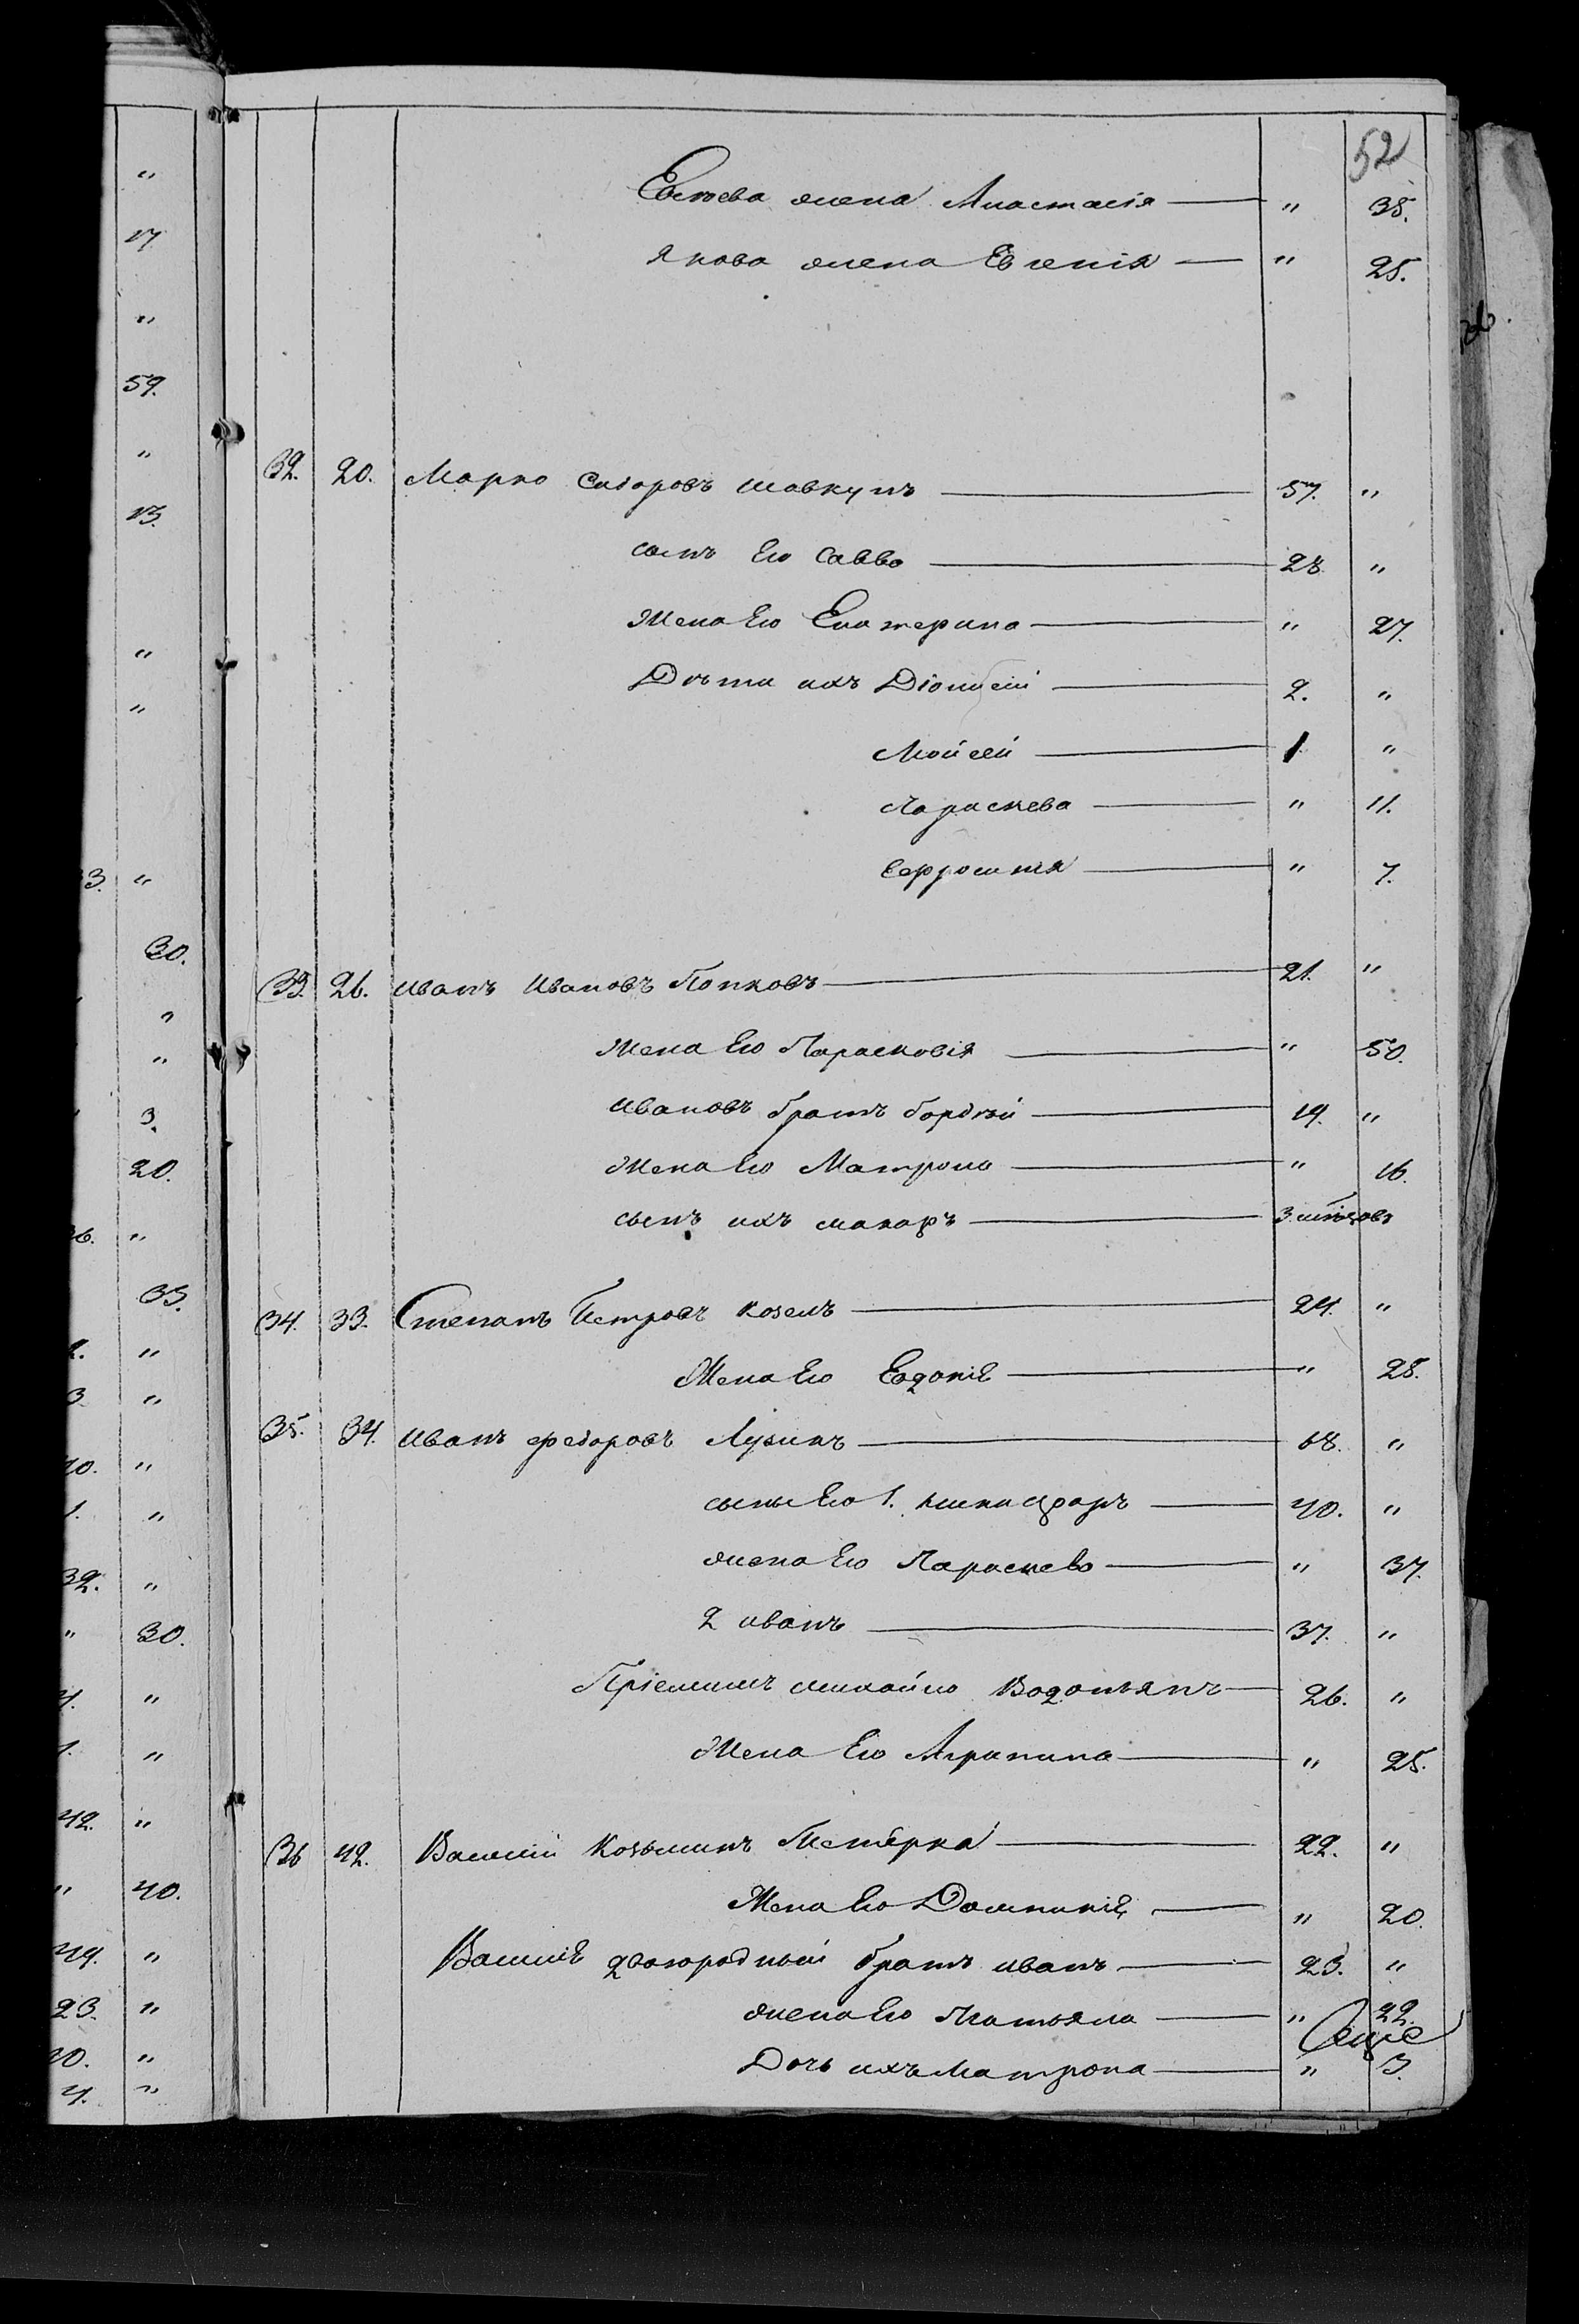 52
Евсѣева жена Анастасія — " 38.
Якова жена Евгенія — " 25.
32. 20. Марко Сидоровъ Шавкунъ — 57. "
сынъ Его Савва — 28 "
Жена Его Екатерина — " 27.
Дѣти ихъ Діонисій — 2. "
Мойсей — 1 "
Параскева — " 11.
Ефросинія — " 7.
33. 26. Иванъ Ивановъ Попковъ — 21. "
Жена Его Парасковія — " 50.
Ивановъ братъ Гордѣй — 19. "
Жена Его Матрона — " 16.
сынъ ихъ Макаръ — 3 мѣсяцовъ
34. 33. Степанъ Петровъ Козелъ — 24. "
Жена Его Евдокія — " 28.
35. 34. Иванъ Федоровъ Лузинъ — 68. "
сыны Его 1. Никифоръ — 40. "
жена Его Параскева — " 37.
2 Иванъ — 37. "
Пріемышъ Михайло Водопьянъ — 26. "
Жена Его Агрипина — " 25.
36 42. Василій Козьминъ Петерка — 22. "
Жена Его Домникія — " 20.
Василія двоюродный братъ Иванъ — 23. "
жена Его Татьяна — " 22.
Дочь ихъ Матрона — " 3.
"
17
"
59.
"
13.
"
"
3. "
30.
"
"
3.
20.
6. "
35.
2. "
3 "
10. "
1. "
32. "
" 30.
4. "
1. "
42. "
" 40.
44. "
23. "
10. "
4. "